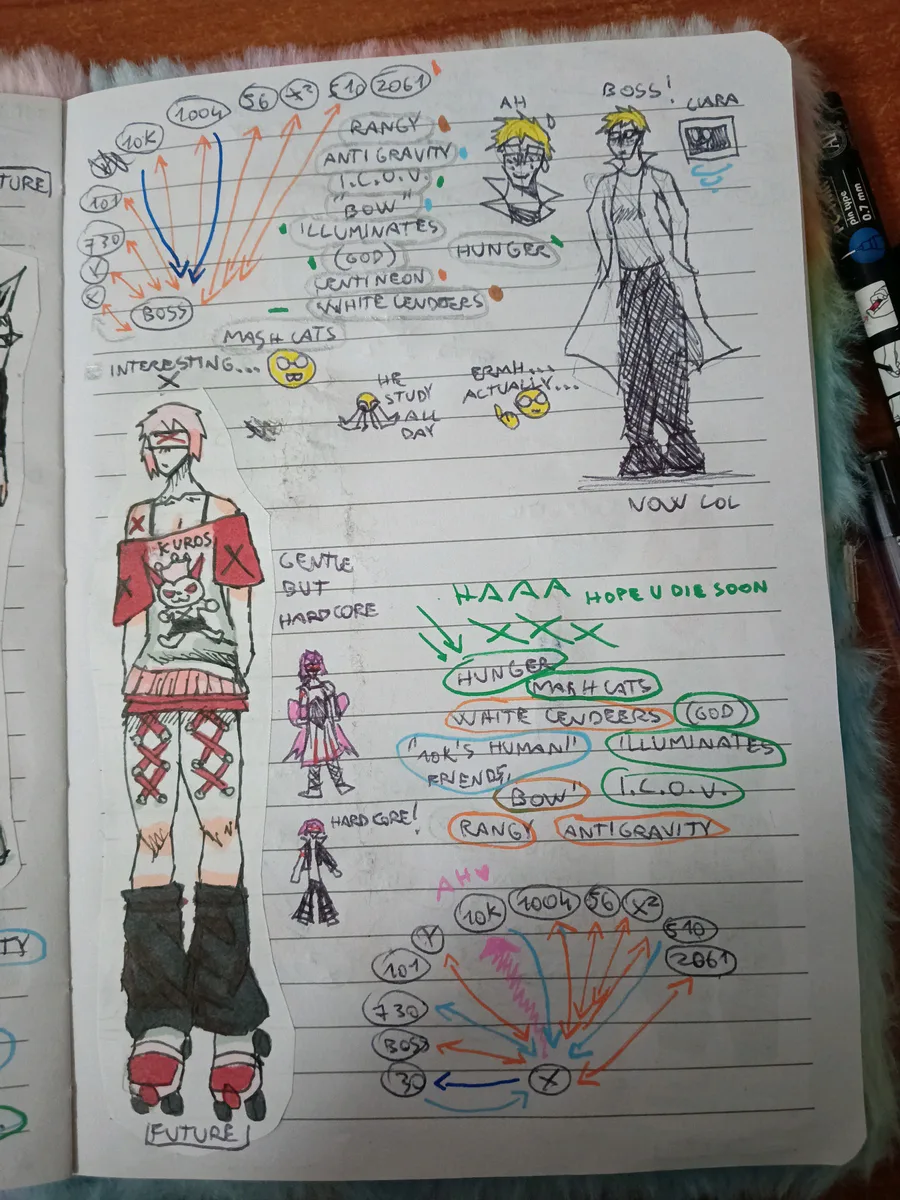 TURE
10K
1004
56
X²
510
2061
101
730
Y
X
BOSS
RANGY
ANTIGRAVITY
I.C.O.V.
"BOW"
ILLUMINATES
(GOD)
HUNGER
CENTINEON
WHITE CENDEERS
MASH CATS
AH
BOSS!
CIARA
INTERESTING...
X
HE
STUDY
ALL
DAY
ERMH...
ACTUALLY...
NOW LOL
KUROS
GENTLE
BUT
HARDCORE
HAAA HOPE U DIE SOON
XXX
HUNGER
MASH CATS
WHITE CENDEERS (GOD)
"10K'S HUMAN" ILLUMINATES
FRIENDS,
"BOW" I.C.O.V.
RANGY ANTIGRAVITY
HARDCORE!
AH♥
10K
1004
56
X²
510
2061
Y
101
730
BOSS
130
X
FUTURE
TY